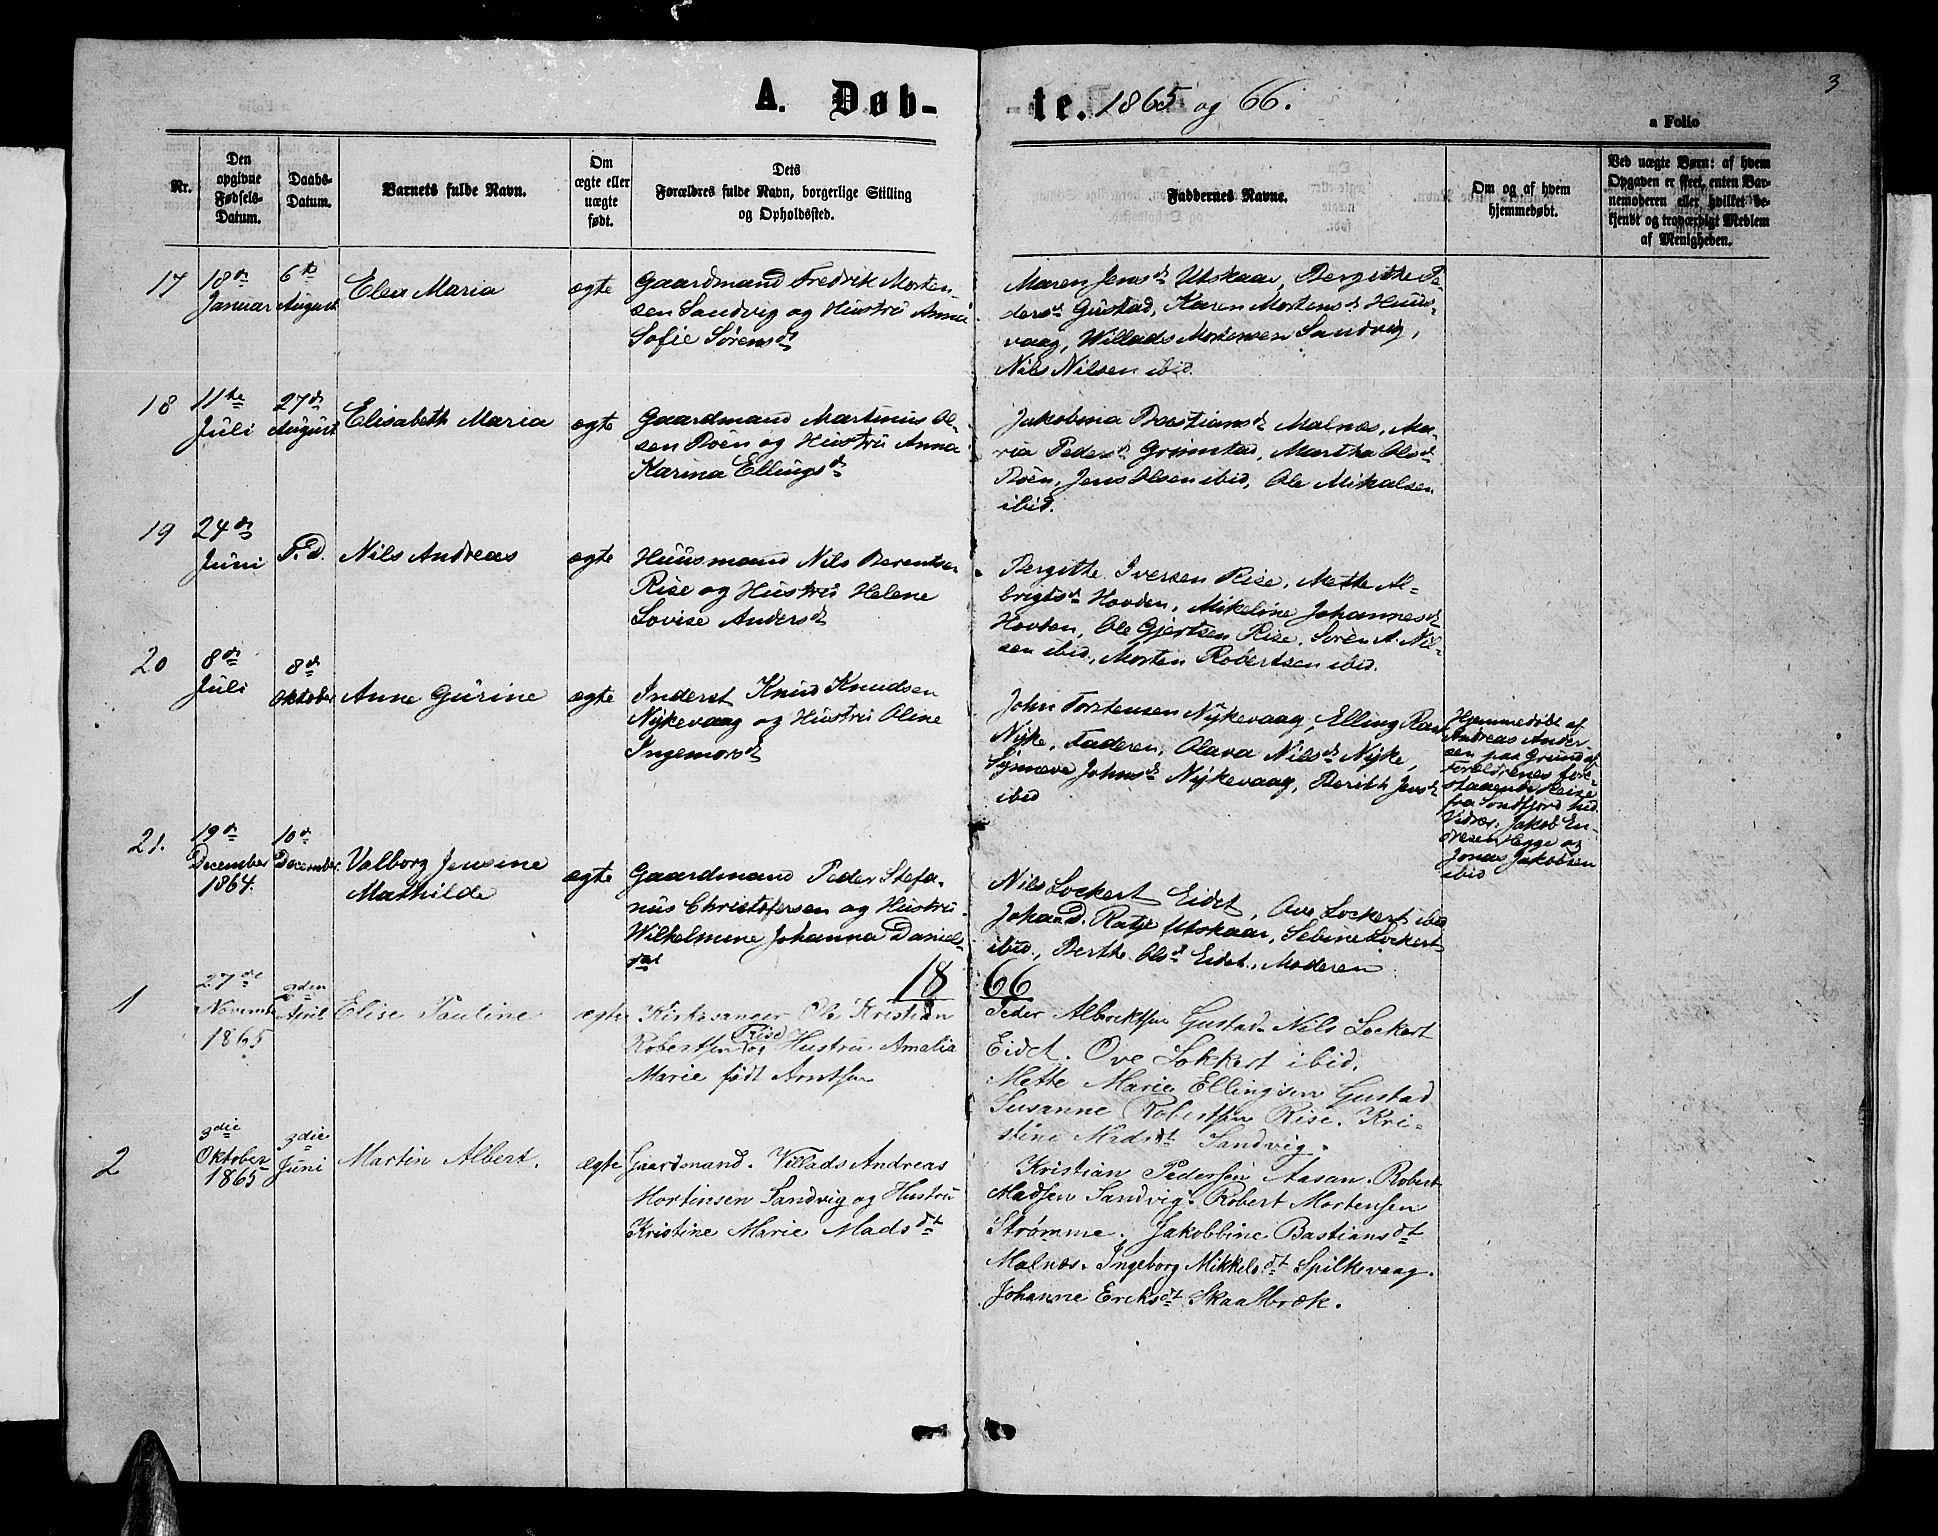 3
A. Døb-
te. 1865 og 66.
a Folio
Nr.
Den
opgivne
Fødsels-
Datum.
Daabs-
Datum.
Barnets fulde Navn.
Om
ægte eller
uægte
født.
Dets
Forældres fulde Navn, borgerlige Stilling
og Opholdssted.
Faddernes Navne.
Om og af hvem
hjemmedøbt.
Ved uægte Børn: af hvem
Opgaven er skeet, enten Bar-
nemoderen eller hvilket be-
kjendt og troværdigt Medlem
af Menigheden.
17
18de
Januar
6te
August
Elen Maria
ægte
Gaardmand Fredrik Morten-
sen Sandvig og Hustru Anna
Sofie Sørensdt
Maren Jensdt Utskaar, Bergithe Pe-
dersdt Gustad, Karen Mortensdt Huus-
vaag, Willads Mortensen Sandvig,
Nils Nilsen ibid.
18
11te
Juli
27de
August
Elisabeth Maria
ægte
Gaardmand Martinus Ol-
sen Roen og Hustru Anna
Karina Ellingsdt
Jakobina Bastiansdt Malnæs, Ma-
ria Pedersdt Grimstad, Martha Olsdt
Roen, Jens Olsen ibid, Ole Mikalsen
ibid.
19
24de
Juni
F. D.
Nils Andreas
ægte
Huusmand Nils Berentsen
Rise og Hustru Helene
Lovise Andersdt
Bergitte Iversen Rise, Mette Al-
brigtsdt Hovden, Mikeline Johannesdt
Hovden, Ole Gjertsen Rise, Søren A. Nil-
sen ibid., Morten Robertsen ibid.
20
8de
Juli
8de
Oktober
Anne Gurine
ægte
Inderst Knud Knudsen
Nykevaag og Hustru Oline
Ingemorsdt
John Torstensen Nykevaag, Elling
Nyke, Faderen, Olava Nilsdt Nyke,
Synneva Johnsdt Nykevaag, Berith Jensdt
ibid
Hjemmedøbt af
Andreas Ander-
sen paa Grund af
Forældrenes fore-
staaende Reise
fra Søndfjord hid.
Vidner: Jakob En-
dresen Hegge og
Jonas Jakobsen
ibid
21.
19de
December
1864.
10de
December
Valborg Jensine
Mathilde
ægte
Gaardmand Peder Stefa-
nus Christofersen og Hustru
Wilhelmine Johanna Daniels-
dat
Nils Lockert Eidet, Ove Lockert ibid
Johan D. Ratje Utskaar, Sebine Lockert
ibid., Berthe Olsdt Eidet, Moderen
1866
1
27de
November
1865
2den
April
Elise Pauline
ægte
Kirkesanger Ole Kristian
Robertsen Rise og Hustru Amalia
Marie født Arntsen
Peder Albrektsen Gustad. Nils Lockert
Eidet. Ove Lokkert ibid.
Mette Marie Ellingsen Gustad
Susanne Robertsen Rise. Kri-
stine Madsdt Sandvig.
2
3die
Oktober
1865
3die
Juni
Martin Albert.
ægte
Gaardmand. Villads Andreas
Mortinsen Sandvig og Hustru
Kristine Marie Madsdt
Kristian Pedersen Aasan. Robert
Madsen Sandvig. Robert Mortensen
Strømme. Jakobbine Bastiansdt
Malnæs. Ingeborg Mikkelsdt Spilkevaag.
Johanne Eriksdt Skaatbræk.